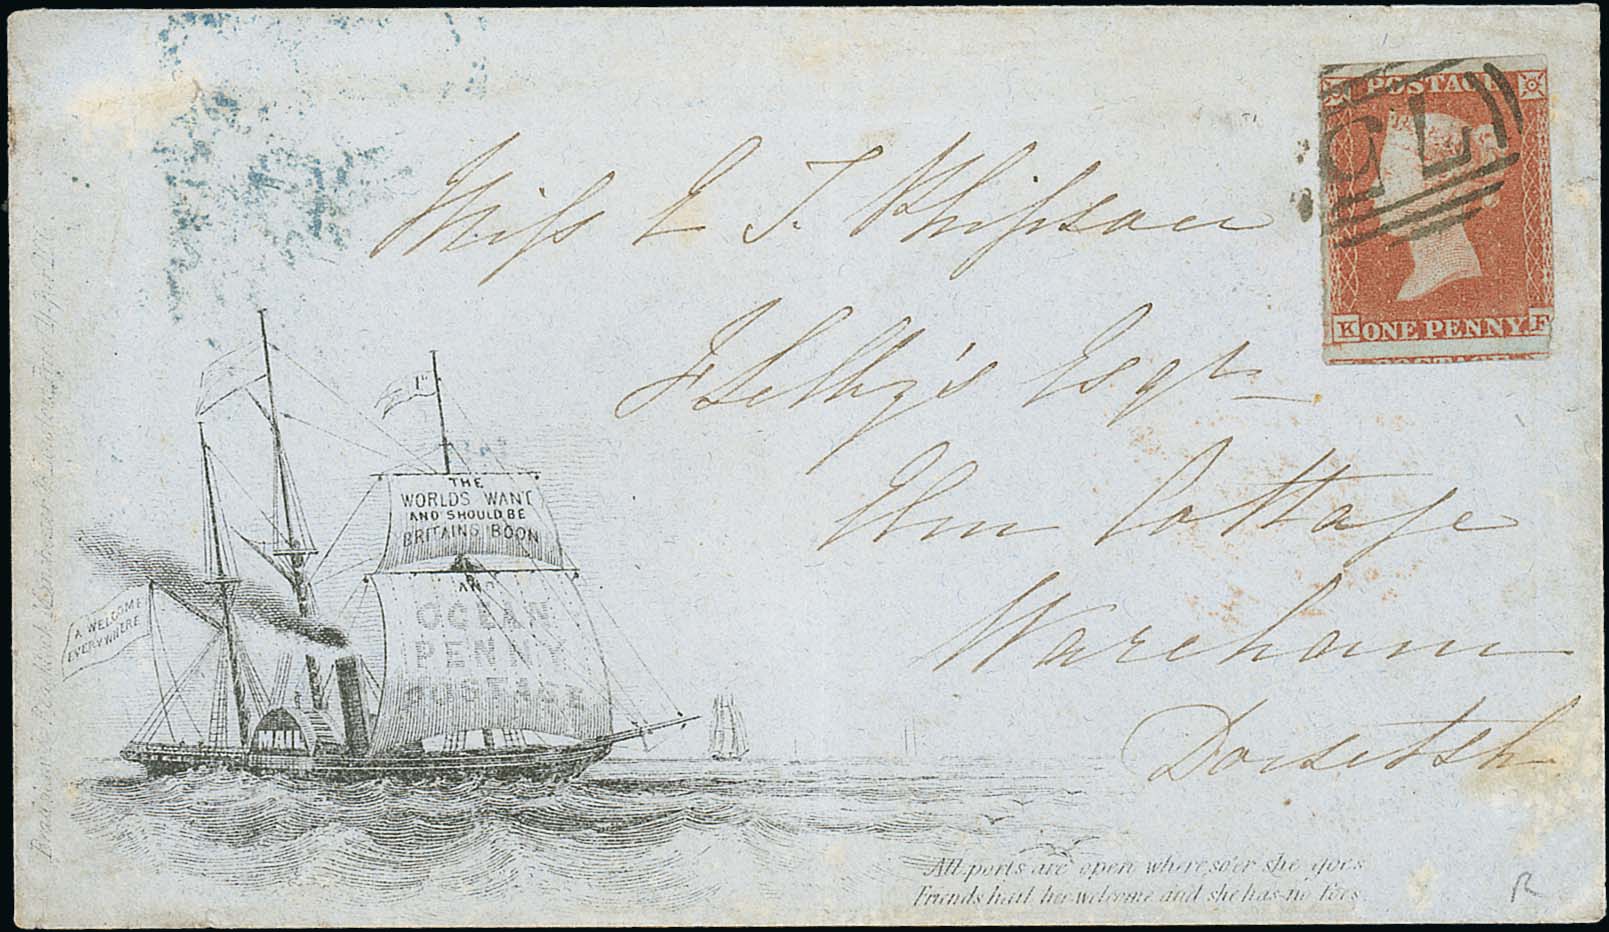 POSTAGE
GL
K ONE PENNY F
POSTAGE
Miss E J Phipson
Selby's Esqr
Elm Cottage
Wareham
Dorsetsh
1d
THE
WORLDS WANT
AND SHOULD BE
BRITAINS BOON
AND
OCEAN
PENNY
POSTAGE
A WELCOME
EVERYWHERE
All ports are open wheresoe'r she goes
Friends hail her welcome and she has no foes
R